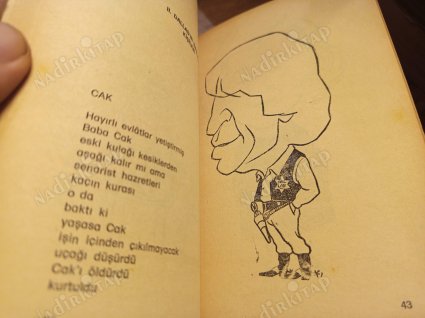 CAK
Hayırlı evlâtlar yetiştirmiş
Baba Cak
eski kulağı kesiklerden
aşağı kalır mı ama
senarist hazretleri
kaçın kurası
o da
baktı ki
yaşasa Cak
işin içinden çıkılmayacak
uçağı düşürdü
Cak'ı öldürdü
kurtuldu
43
NADİRKİTAP
NADİRKİTAP
NADİRKİTAP
NADİRKİTAP